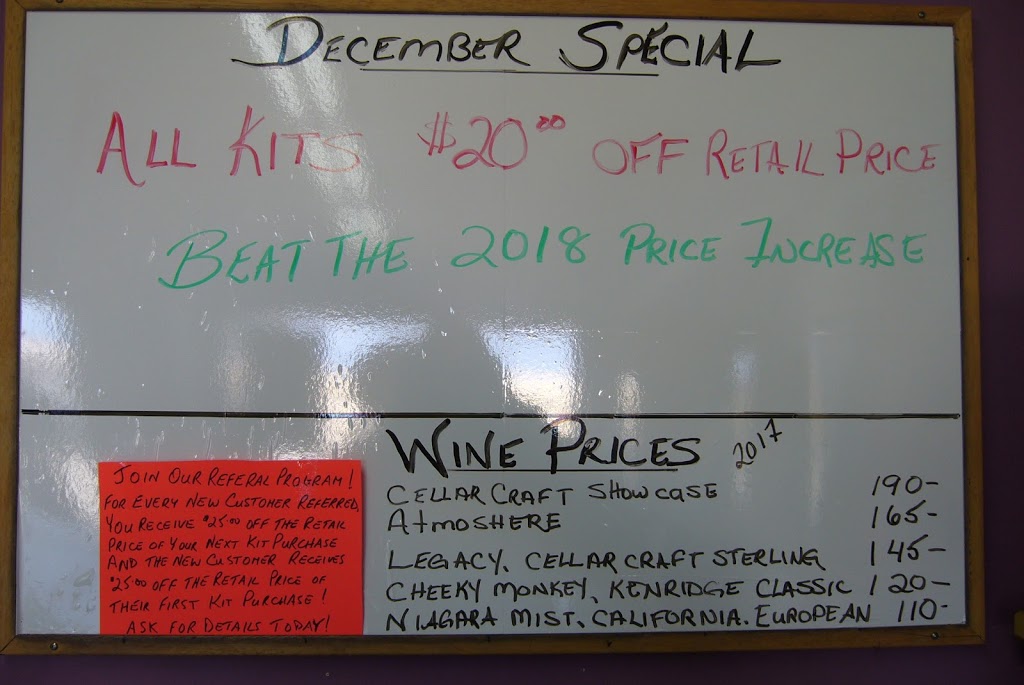 DECEMBER SPECIAL
ALL KITS $20.00 OFF RETAIL PRICE
BEAT THE 2018 PRICE INCREASE
WINE PRICES 2017
CELLAR CRAFT SHOWCASE 190-
ATMOSHERE 165-
LEGACY, CELLAR CRAFT STERLING 145-
CHEEKY MONKEY, KENRIDGE CLASSIC 120-
NIAGARA MIST, CALIFORNIA, EUROPEAN 110-
JOIN OUR REFERAL PROGRAM!
FOR EVERY NEW CUSTOMER REFERRED,
YOU RECEIVE $25.00 OFF THE RETAIL
PRICE OF YOUR NEXT KIT PURCHASE
AND THE NEW CUSTOMER RECEIVES
$25.00 OFF THE RETAIL PRICE OF
THEIR FIRST KIT PURCHASE!
ASK FOR DETAILS TODAY!